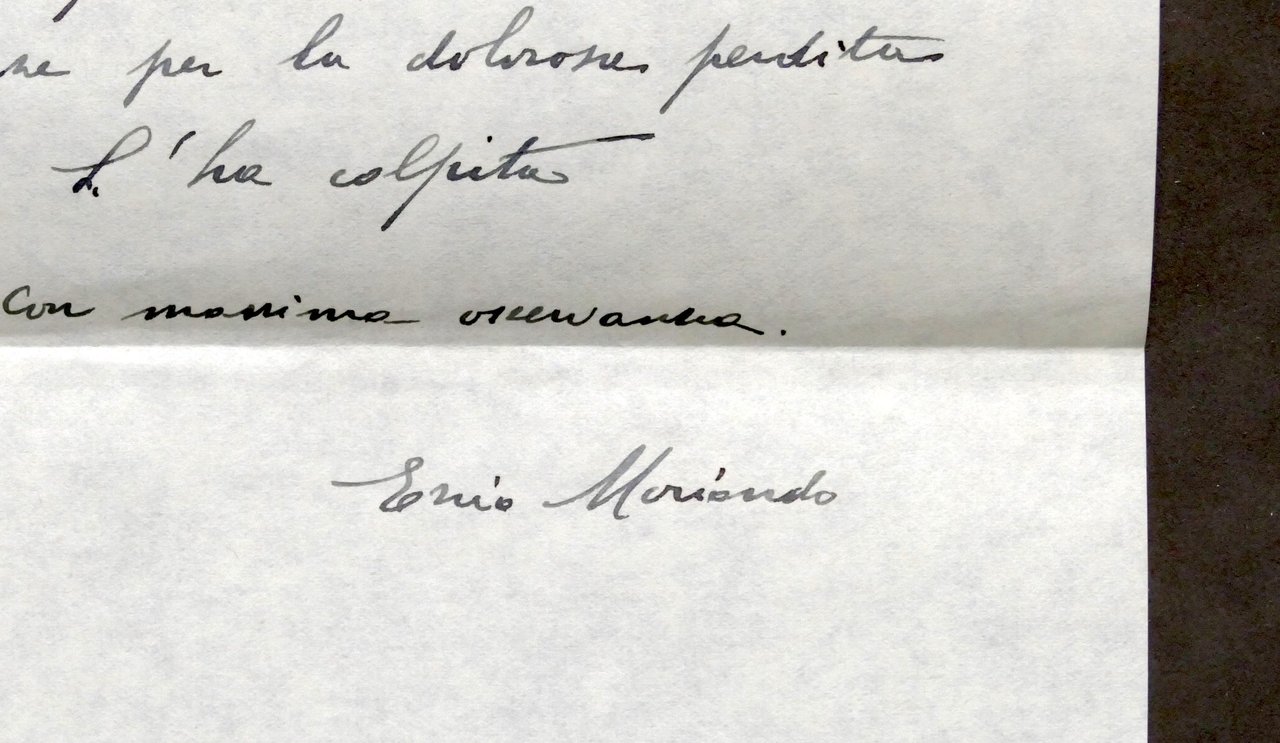 ne per la dolorosa perdita
L'ha colpita
Con massima osservanza.
Enio Moriondo